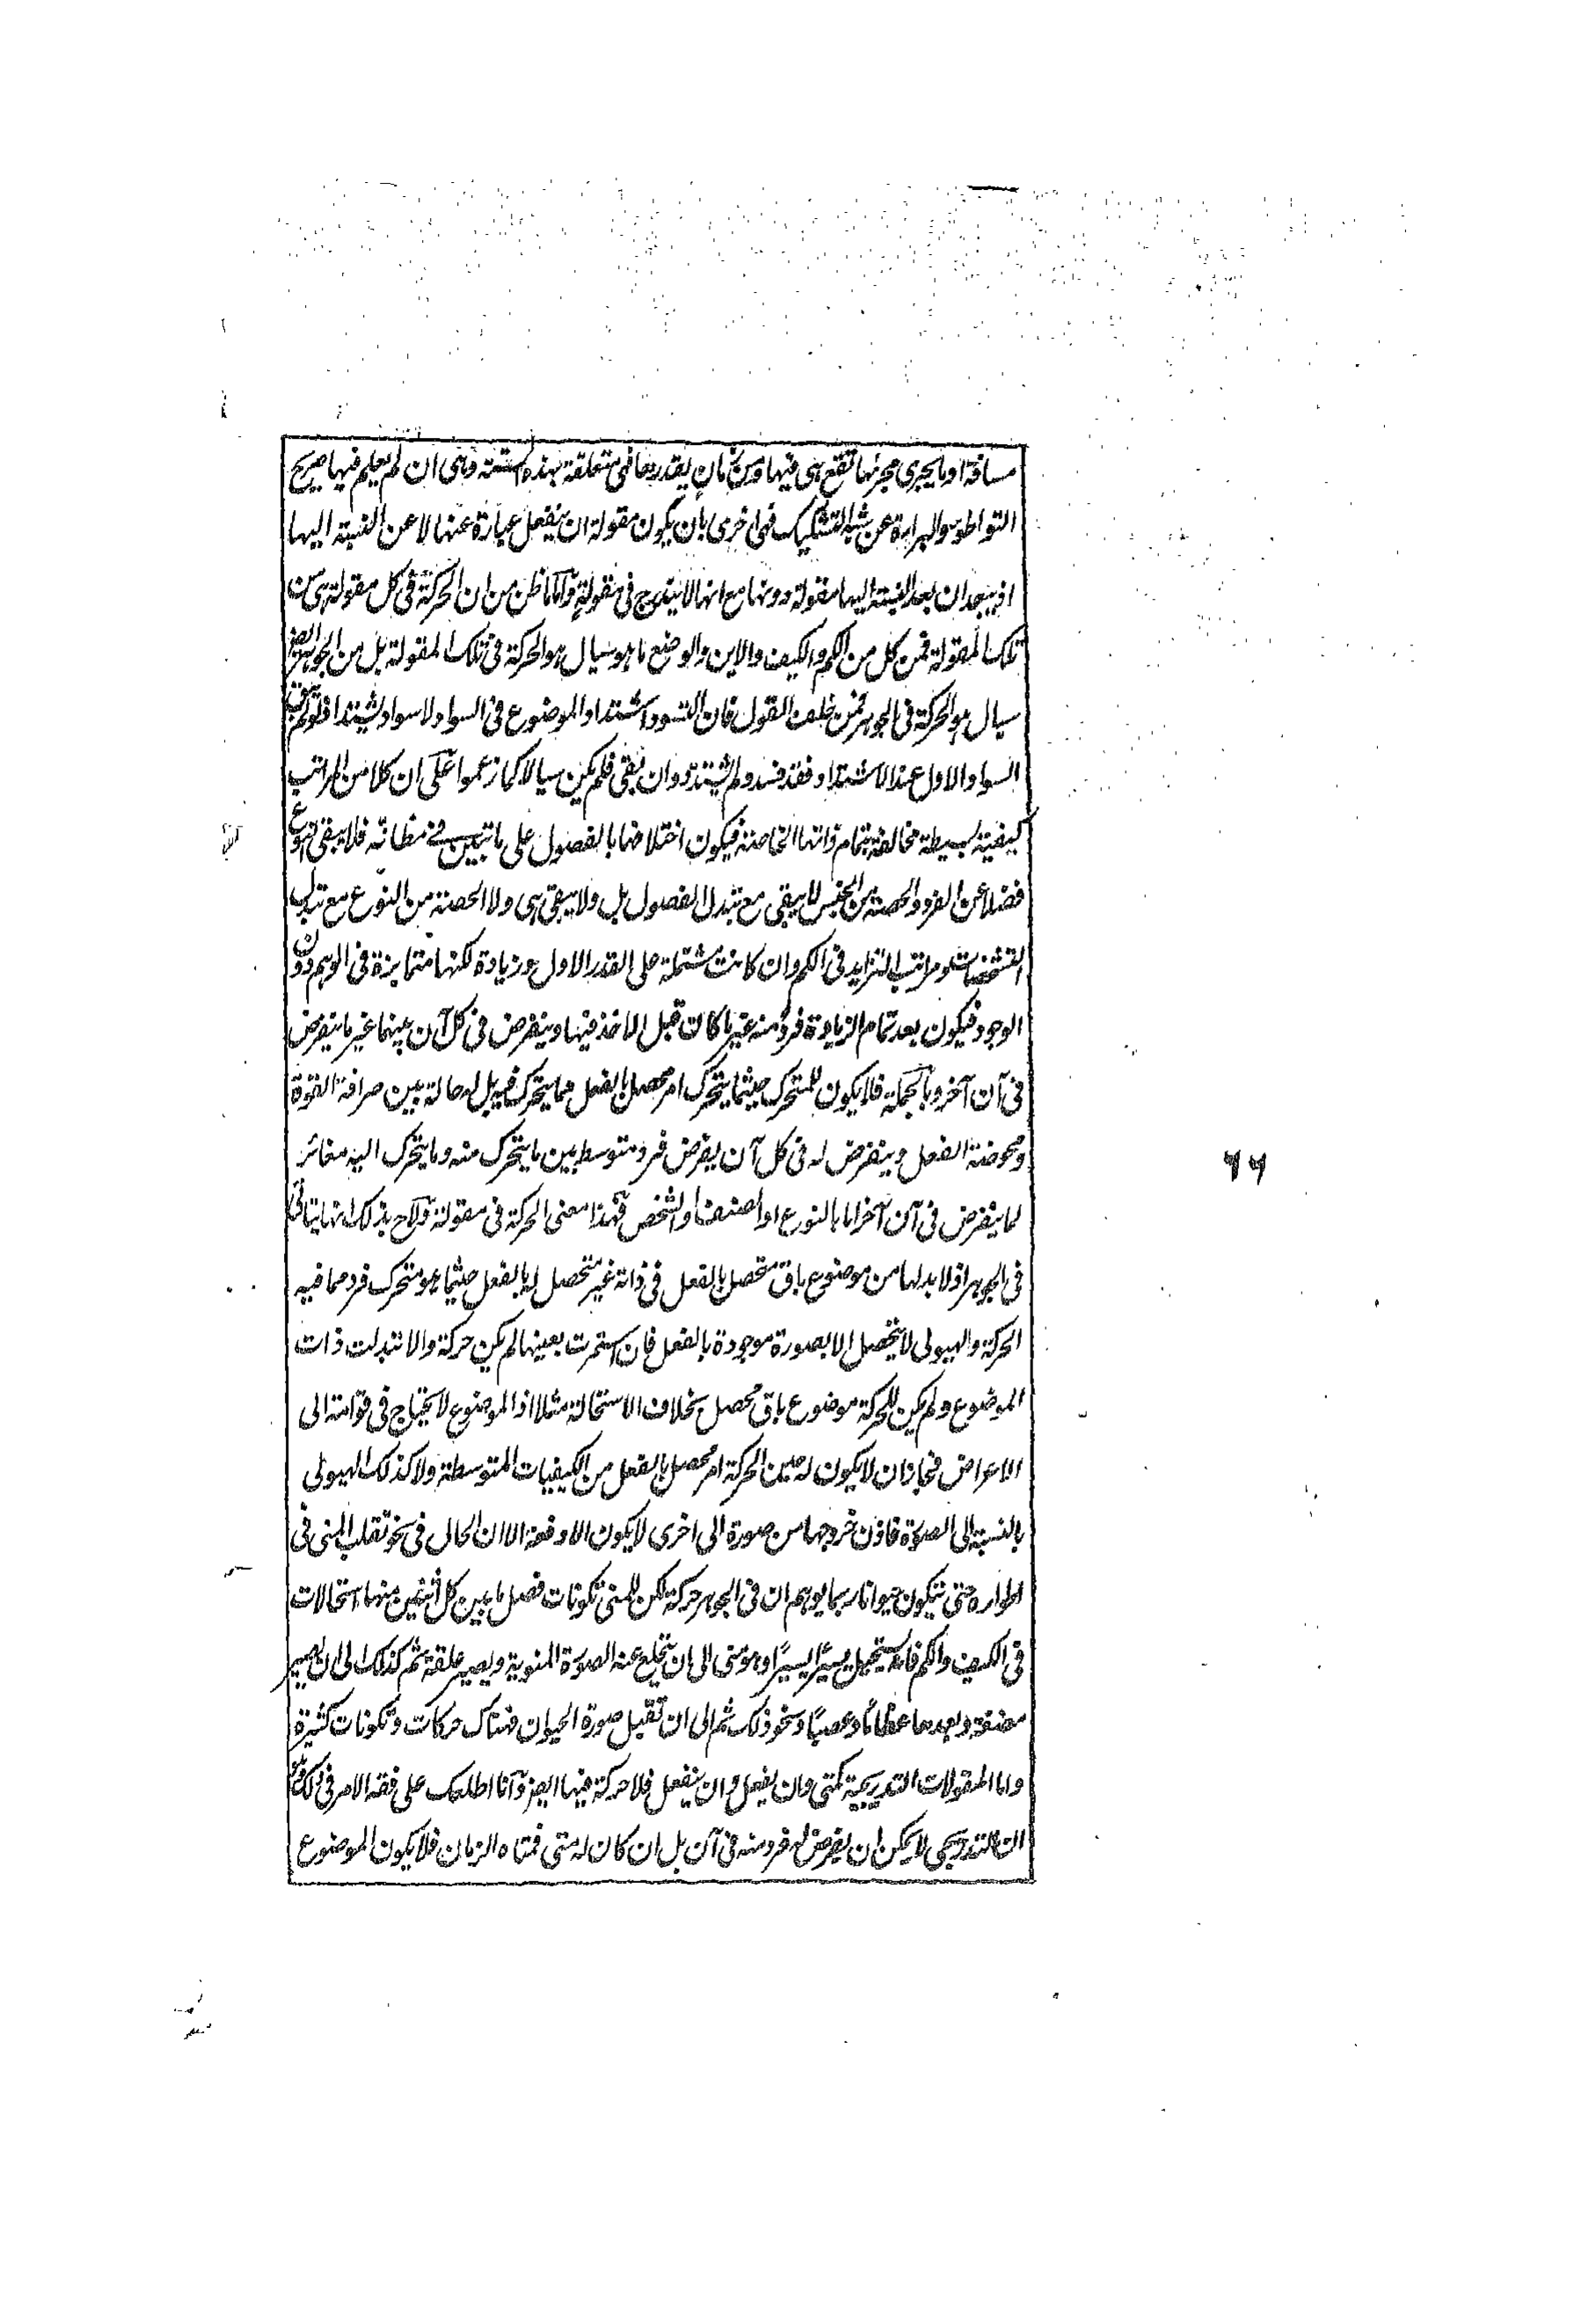 مسافة او ما يجرى مجرىها تقع هى فيها ومن زمان يقدرها فهى متعلقة بهذه الستة وهى ان لم يعلم فيها صريح
التواطوء والبراءة عن شبه التشكيك فهى احرى بان يكون مقولة ان ينفعل عبارة عنها لا عن النسبة اليها
اذ يبعد ان يعد النسبة اليها مقولة دونها مع انها لا يندرج فى مقولة وآما ما ظن من ان الحركة فى كل مقولة هى من
تلك المقولة فمن كل من الكم والكيف والاين والوضع ما هو سيال هو الحركة فى تلك المقولة بل من الجوهر ايضا
سيال هو الحركة فى الجوهر فمن خلف القول فان التسود اشتداد الموضوع فى السواد لا سواد يشتد اذ لو لم يبق
السواد الاول عند الاشتداد فقد فسد ولم يشتد وان بقى فلم يكن سيالا كما زعموا علٓى ان كلا من المراتب
كيفية بسيطة مخالفة بتمام ذاتها الخاصة فيكون اختلافها بالفصول على ما تبين فى مظانه فلا يبقى النوع
فضلا عن الفرد والحصة من الجنس لا يبقى مع تبدل الفصول بل ولا يبقى هى ولا الحصة من النوع مع تبدل
التشخصات ومراتب التزايد فى الكم وان كانت مشتملة على القدر الاول وزيادة لكنها متمايزة فى الوهم دون
الوجود فيكون بعد تمام الزيادة فرد منه غير ما كان قبل الاخذ فيها وينفرض فى كل آن بينهما غير ما ينفرض
فى آن آخر وبآلجملة فلا يكون للمتحرك حيثما يتحرك امر محصل بالفعل مما يتحرك فيه بل له حالة بين صرافة القوة
ومحوضة الفعل وينفرض له فى كل آن يفرض فرد متوسط بين ما يتحرك منه وما يتحرك اليه مغائر
لما ينفرض فى آن آخر اما بالنوع او الصنف او الشخص فهٓذا معنى الحركة فى مقولة وٓلاح بذلك انها لا يتاتى
فى الجوهر اذ لا بد لها من موضوع باق متحصل بالفعل فى ذاته غير متحصل له بالفعل حيثما هو متحرك فرد مما فيه
الحركة والهيولى لا يتحصل الا بصورة موجودة بالفعل فان استمرت بعينها لم يكن حركة والا تبدلت ذات
الموضوع ولم يكن للحركة موضوع باق محصل بخلاف الاستحالة مثلا اذ الموضوع لا يحتاج فى قوامته الى
الاعراض فجاز ان لا يكون له حين الحركة امر محصل بالفعل من الكيفيات المتوسطة ولا كذلك الهيولى
بالنسبة الى الصورة فاذن خروجها من صورة الى اخرى لا يكون الا دفعة الا ان الحال فى نحو تقلب المنى فى
اطواره حتى يتكون حيوانا ربما يوهم ان فى الجوهر حركة لكن للمنى تكونات فصل ما بين كل اثنين منها استحالات
فى الكيف والكم فانه يستحيل يسيرًا يسيرًا وهو منى الى ان ينخلع عنه الصورة المنوية ويصير علقة ثم كذلك الى ان يصير
مضغة وبعدها عظامًا وعصبًا ونحو ذلك ثم الى ان تقبل صورة الحيوان فهناك حركات وتكونات كثيرة
واما المقولات التدريجية كمتى وان يفعل وان ينفعل فلا حركة فيها ايضا وٓانا اطلعك على فقه الامر فى ذلك
ان التدريجى لا يمكن ان يفرض له فرد منه فى آن بل ان كان له متى فمتاه الزمان فلا يكون الموضوع
٦٦